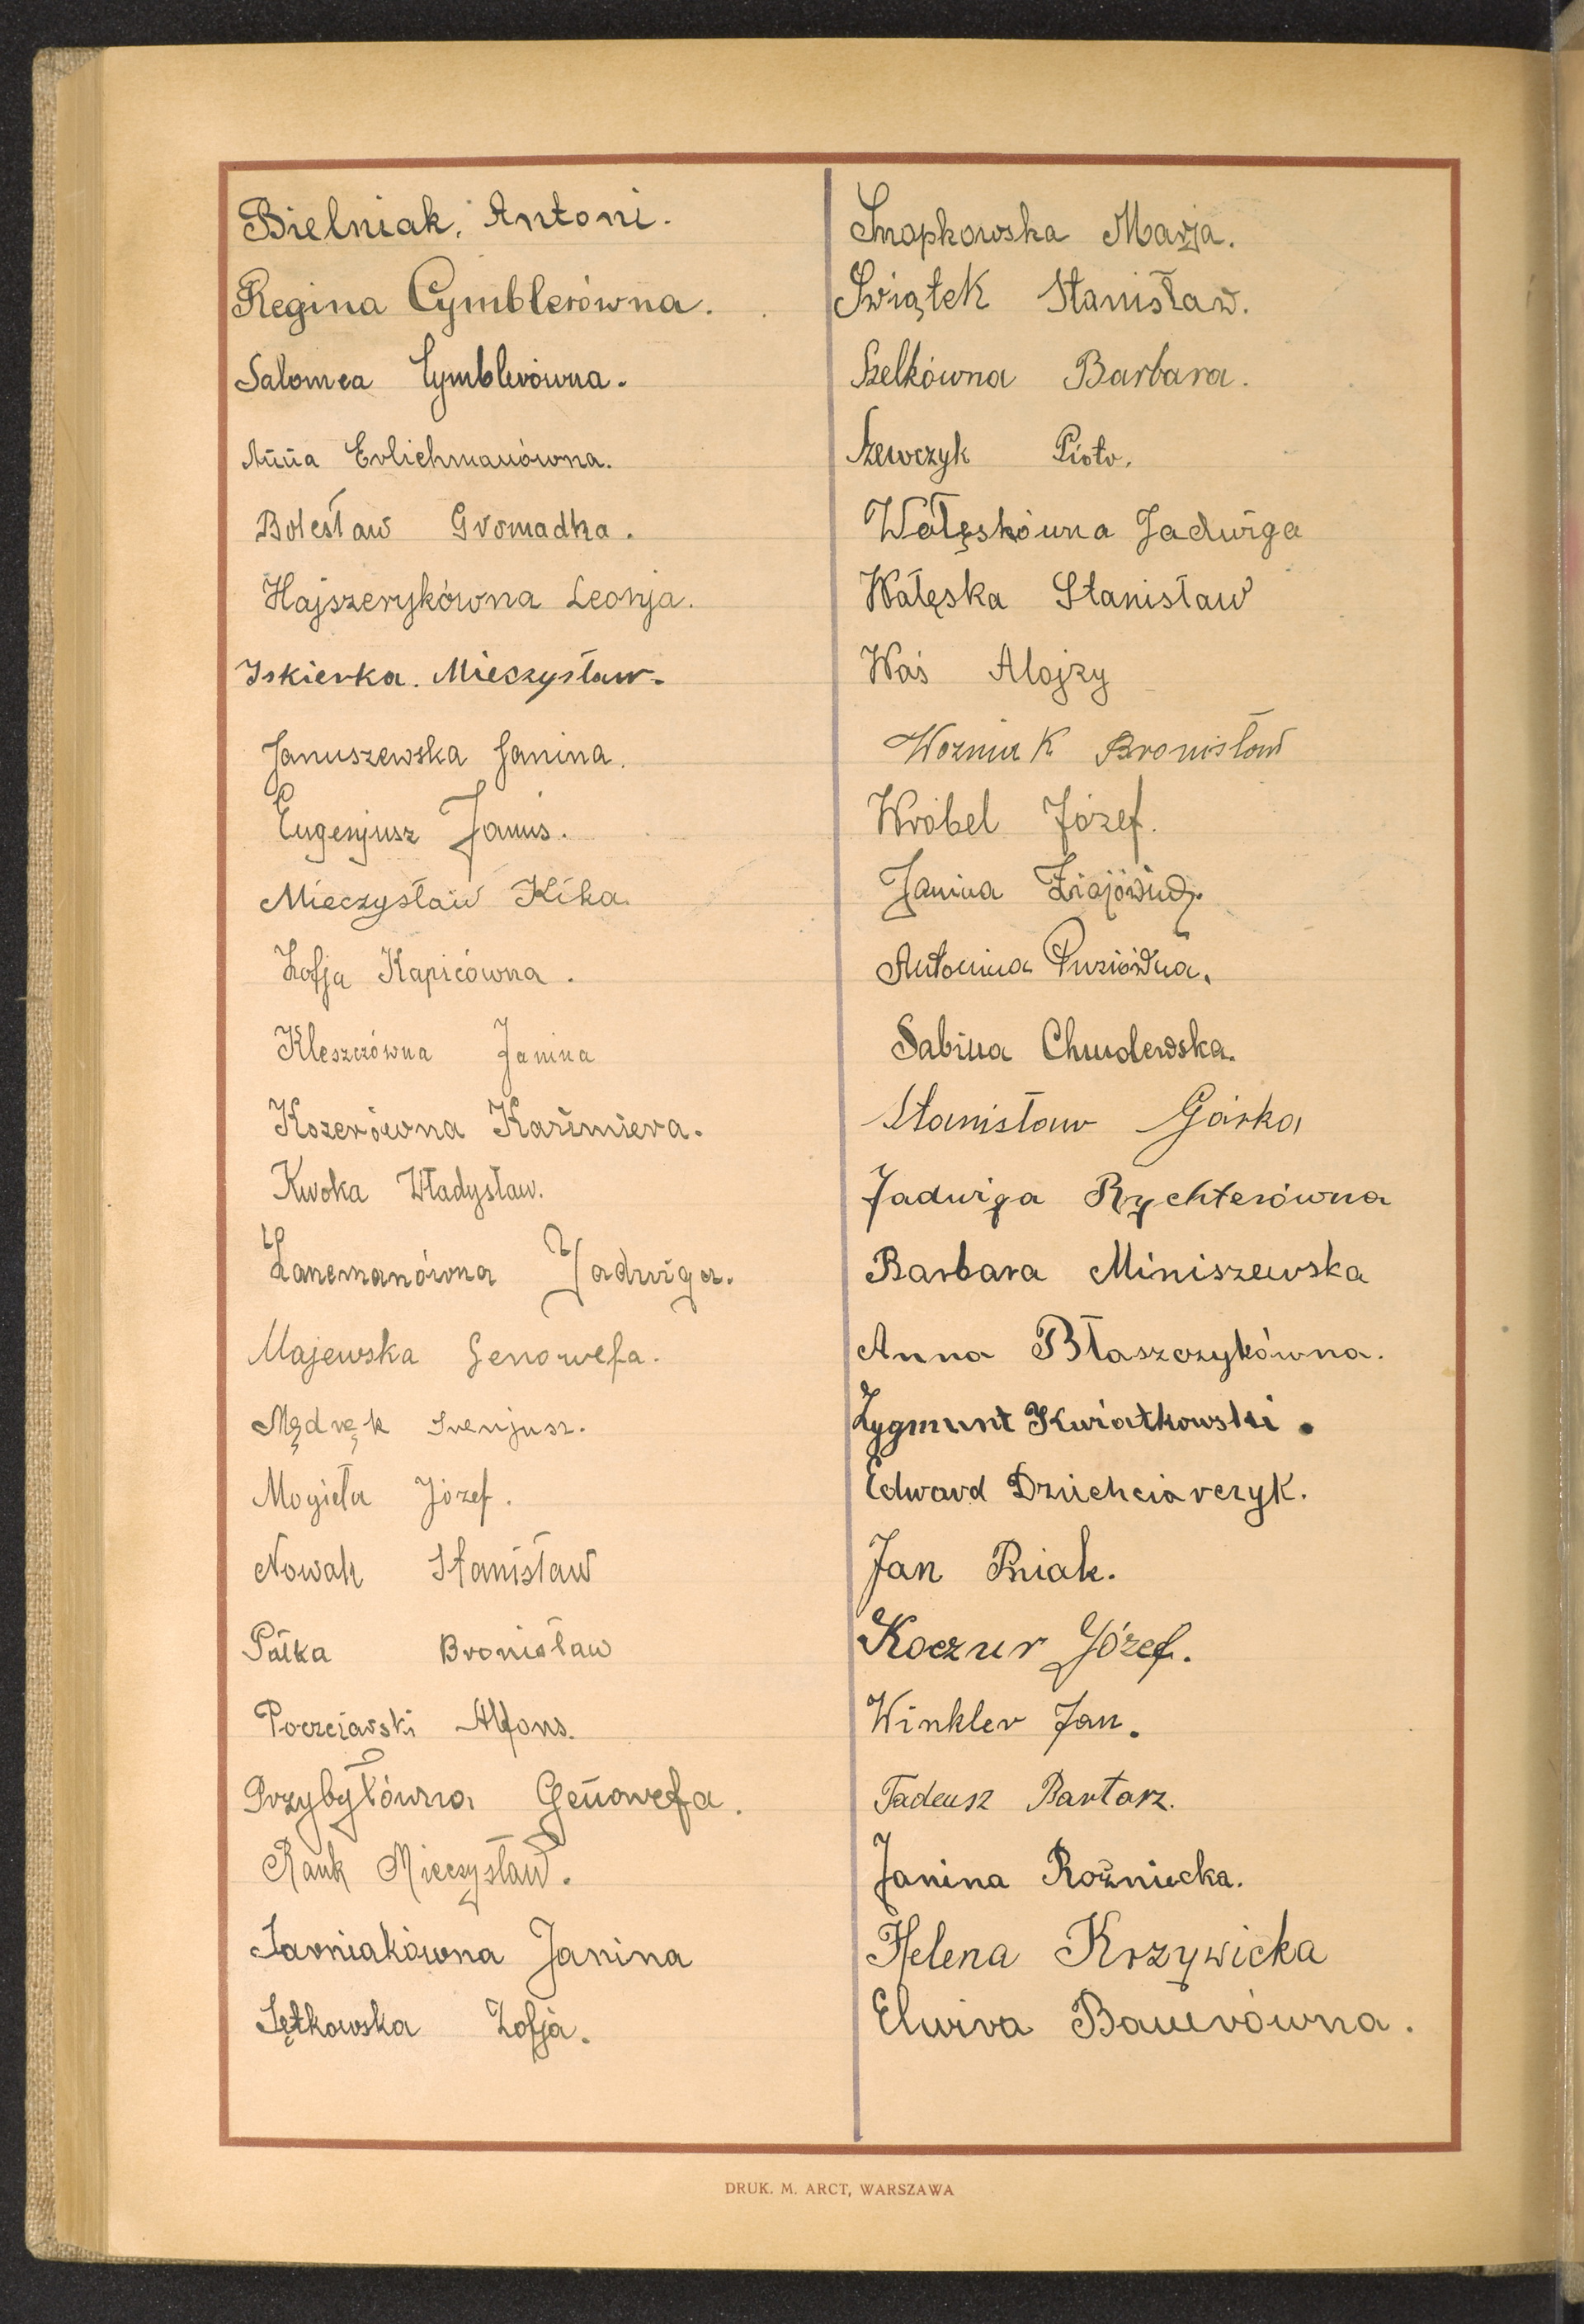 Bielniak, Antoni.
Regina Cymblerówna.
Salomea Cymblerówna.
Anna Erlichmanówna.
Bolesław Gromadka.
Hajszerykówna Leonja.
Iskierka. Mieczysław.
Januszewska Janina.
Eugenjusz Janus.
Mieczysław Kika.
Zofja Kapicówna.
Kleszczówna Janina
Kozerówna Kazimiera.
Kwoka Władysław.
Lanemanówna Jadwiga.
Majewska Genowefa.
Mędręk Irenjusz.
Mogieła Józef.
Nowak Stanisław
Pałka Bronisław
Poczciarski Alfons.
Przybyłówna Genowefa.
Rauk Mieczysław.
Sarniakówna Janina
Sętkowska Zofja.
Snopkowska Marja.
Świątek Stanisław.
Szelkówna Barbara.
Szewczyk Piotr.
Wałęskówna Jadwiga
Wałęska Stanisław
Waś Alojzy
Wozniak Bronisław
Wróbel Józef.
Janina Ziajówna.
Antonina Puziówna.
Sabina Chudewska.
Stanisław Górka
Jadwiga Rychterówna
Barbara Miniszewska
Anna Błaszczykówna.
Zygmunt Kwiatkowski.
Edward Dziechciarczyk.
Jan Pniak.
Koczur Józef.
Winkler Jan.
Tadeusz Bartosz.
Janina Rożniecka.
Helena Krzywicka
Elwira Bauerówna.
DRUK. M. ARCT, WARSZAWA